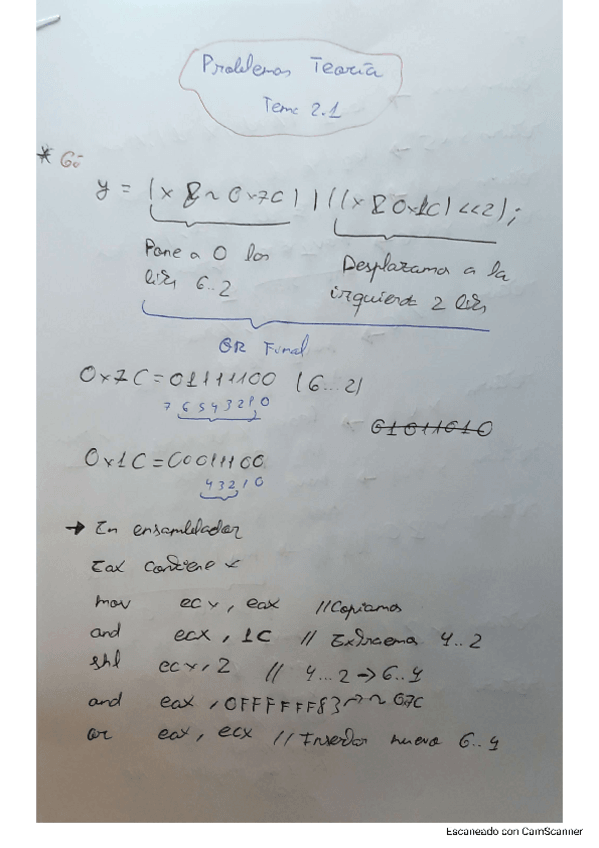 Problemas Teoría
Tema 2.1
* 6:
y = (x & ~ 0x7C) | ((x & 0x1C) <<2);
Pone a 0 los
bits 6..2
Desplazamos a la
izquierda 2 bits
OR Final
0x7C = 01111100 (6...2)
7 6 5 4 3 2 1 0
01011010
0x1C = 00011100
4 3 2 1 0
→ En ensamblador
Eax contiene x
mov ecx, eax //Copiamos
and ecx, 1C // Extraema 4..2
shl ecx, 2 // 4...2 → 6..4
and eax, 0FFFFFF83 → ~ 07C
or eax, ecx // Insertar nuevo 6..4
Escaneado con CamScanner